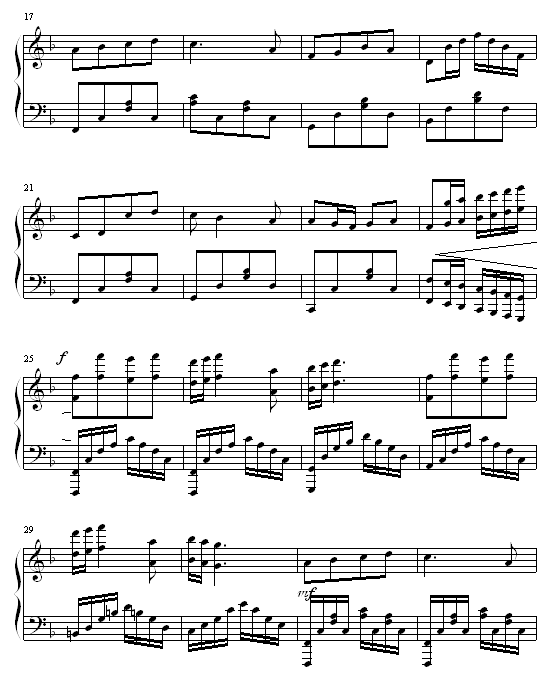 17
21
25
f
29
mf